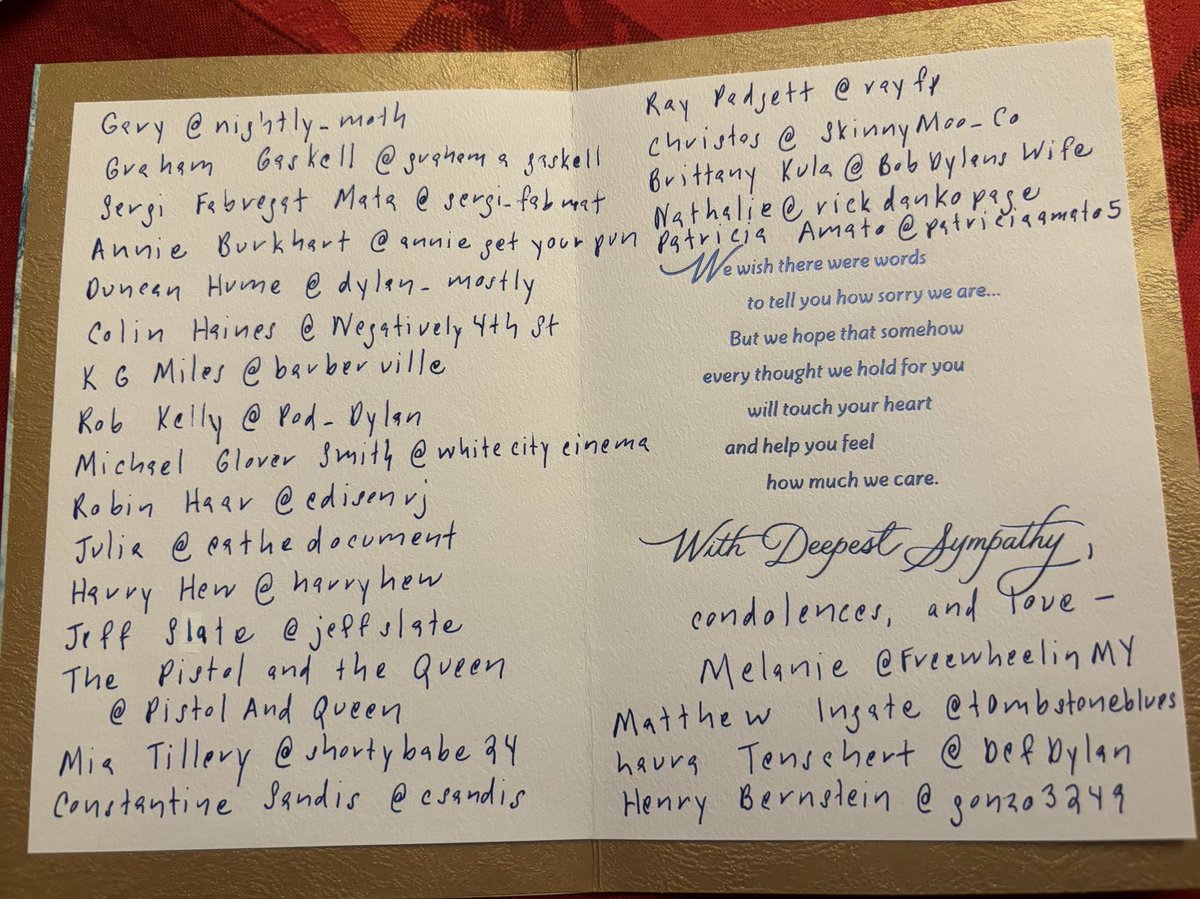 Gary @nightly_moth
Graham Gaskell @grahamagaskell
Sergi Fabregat Mata @sergi_fabmat
Annie Burkhart @annie get your pun
Duncan Hume @dylan_mostly
Colin Haines @Negatively4th St
K G Miles @barberville
Rob Kelly @Pod_Dylan
Michael Glover Smith @whitecitycinema
Robin Haar @edisenrj
Julia @eathedocument
Harry Hew @harryhew
Jeff Slate @jeffslate
The Pistol and the Queen
@ Pistol And Queen
Mia Tillery @shortybabe24
Constantine Sandis @csandis
Ray Padgett @rayfp
Christos @ SkinnyMoo_Co
Brittany Kula @BobDylans Wife
Nathalie@ rickdankopage
Patricia Amato @patriciaamato5
We wish there were words
to tell you how sorry we are...
But we hope that somehow
every thought we hold for you
will touch your heart
and help you feel
how much we care.
With Deepest Sympathy,
condolences, and love –
Melanie @FreewheelinMY
Matthew Ingate @t0mbstoneblues
Laura Tenschert @ DefDylan
Henry Bernstein @ gonzo3249